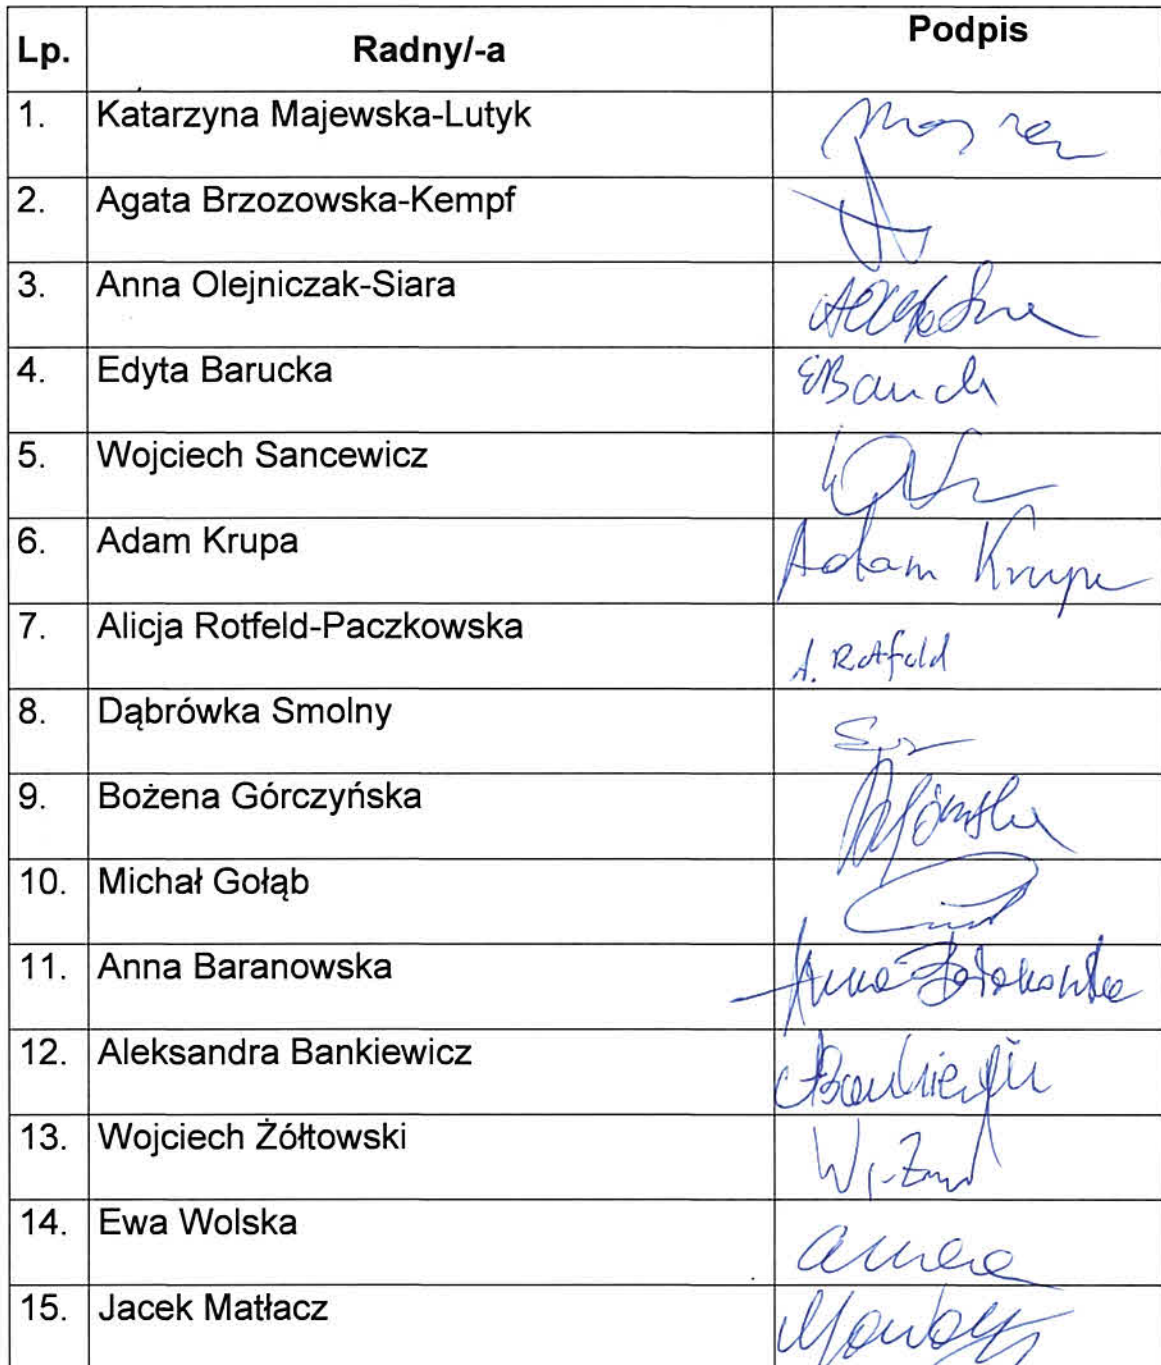 Lp. Radny/-a Podpis
1. Katarzyna Majewska-Lutyk
2. Agata Brzozowska-Kempf
3. Anna Olejniczak-Siara
4. Edyta Barucka
5. Wojciech Sancewicz
6. Adam Krupa Adam Krupa
7. Alicja Rotfeld-Paczkowska A. Rotfeld
8. Dąbrówka Smolny
9. Bożena Górczyńska
10. Michał Gołąb
11. Anna Baranowska Anna Baranowska
12. Aleksandra Bankiewicz ABankiewicz
13. Wojciech Żółtowski
14. Ewa Wolska
15. Jacek Matłacz